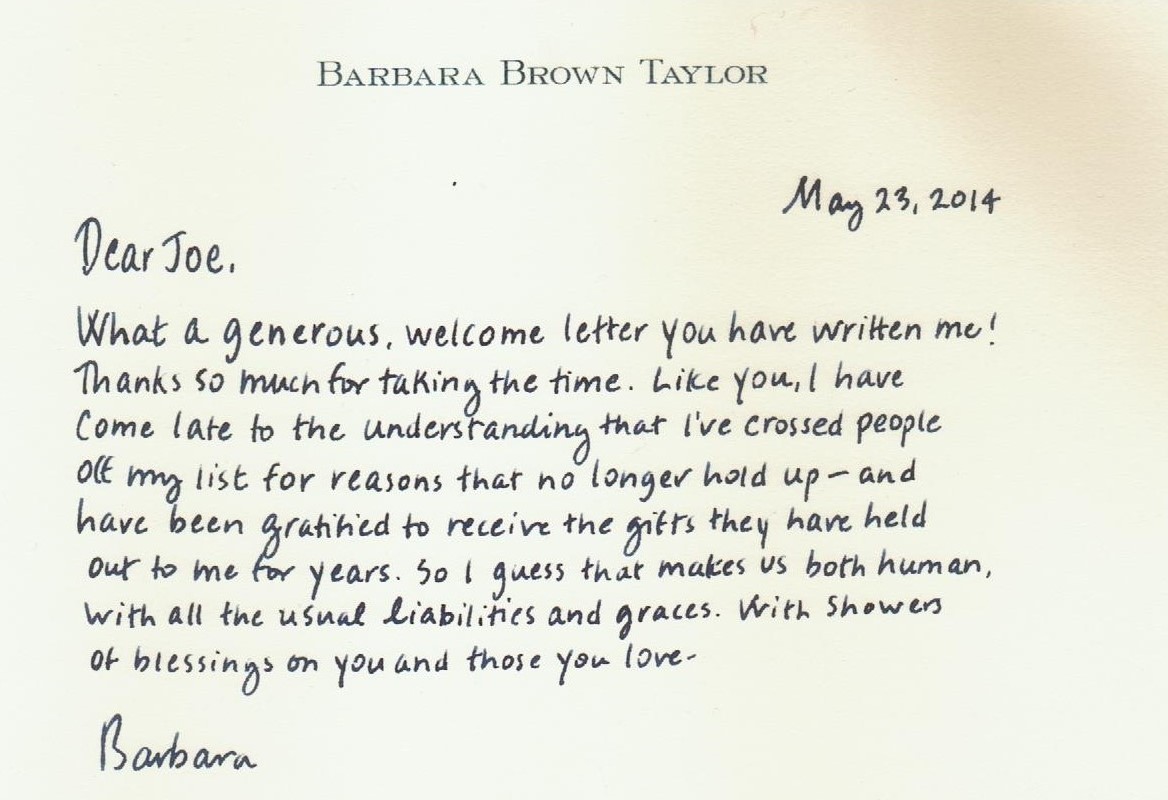 BARBARA BROWN TAYLOR
May 23, 2014
Dear Joe,
What a generous, welcome letter you have written me!
Thanks so much for taking the time. Like you, I have
come late to the understanding that I've crossed people
off my list for reasons that no longer hold up – and
have been gratified to receive the gifts they have held
out to me for years. So I guess that makes us both human,
with all the usual liabilities and graces. With showers
of blessings on you and those you love-
Barbara